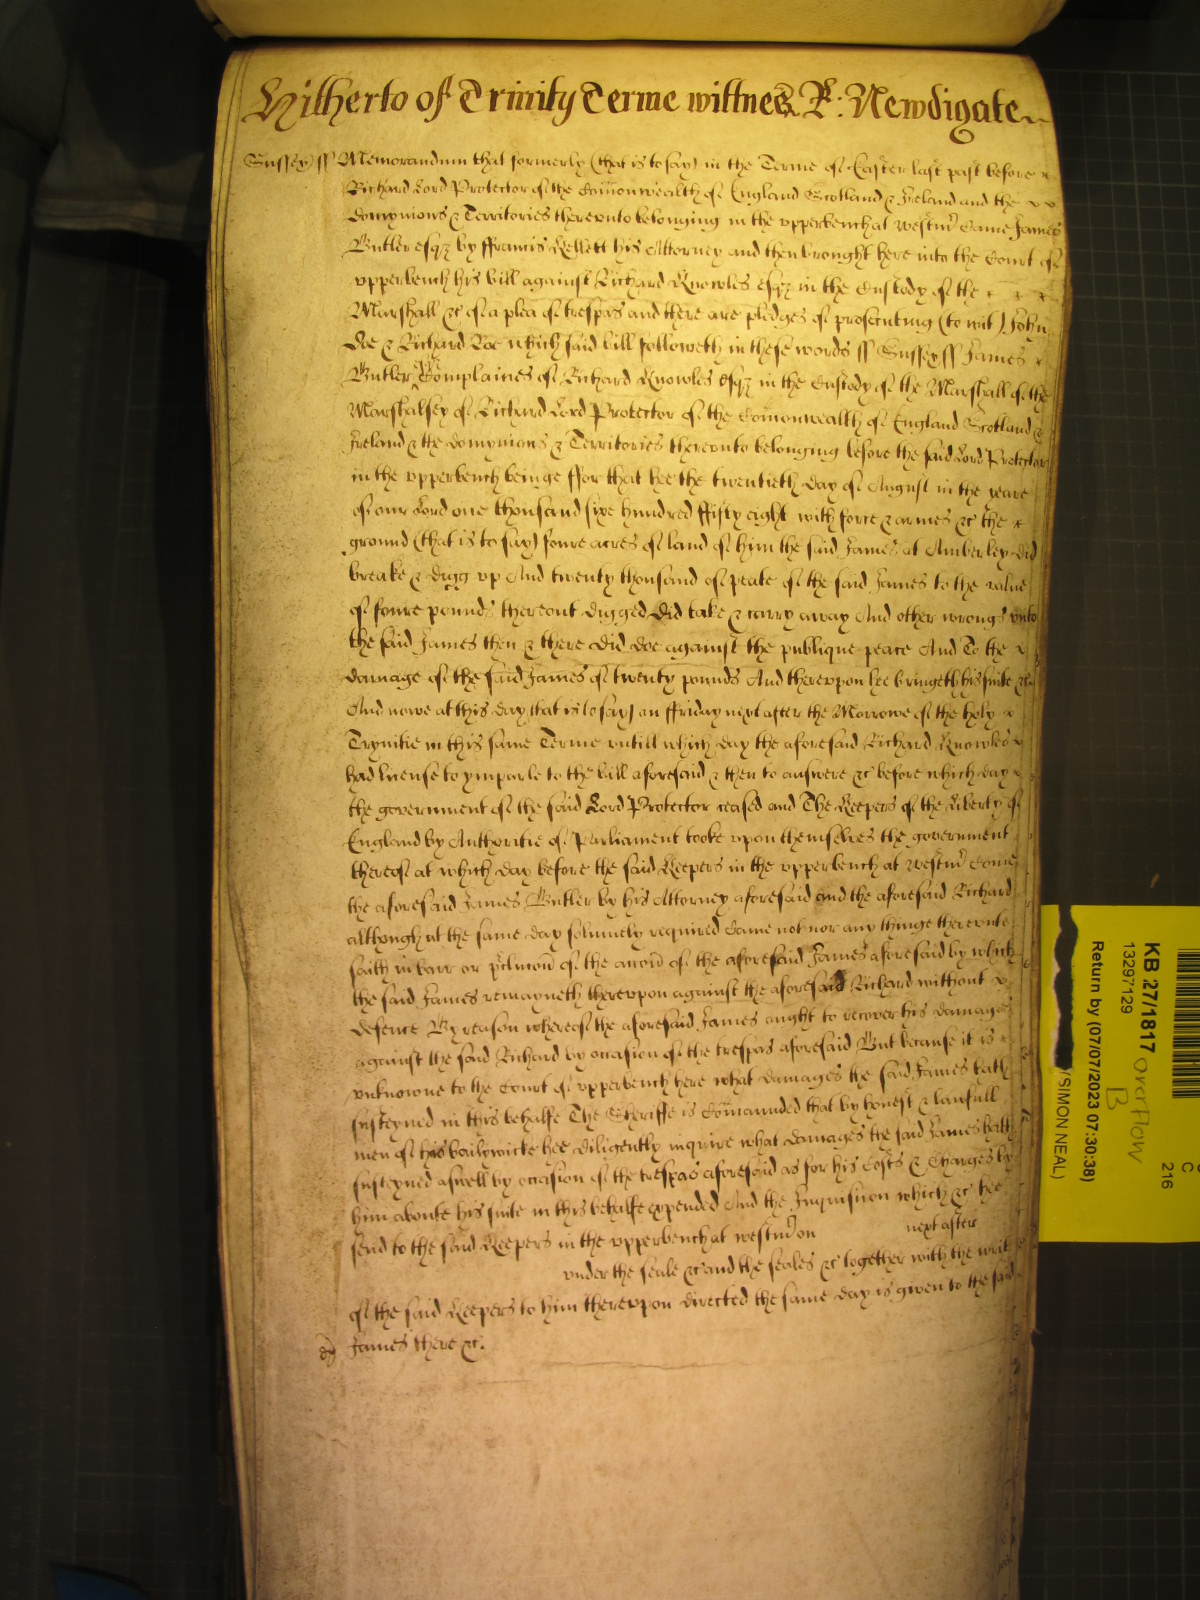 Hitherto of Trinity Terme wittnes R: Newdigate
Sussex ss Memorandum that formerly (that is to say) in the Terme of Easter last past before
Richard Lord Protector of the Com̄onwealth of England Scotland & Ireland and the
Domynions & Territories therevnto belonging in the vpperbench at Westmr̄ Came James
Butler esqz by ffrancis Kellett his Attorney and then brought here into the Court of
vpperbench his bill against Richard Knowles esqz in the Custody of the
Marshall &c of a plea of trespas and there are pledges of prosecuting (to wit) John
Doe & Richard Roe which said bill followeth in these words ss Sussex ss James
Butler Complaines of Richard Knowles esqz in the Custody of the Marshall of the
Marshalsey of Richard Lord Protector of the Com̄onwealth of England Scotland &
Ireland & the domynions & Territories therevnto belonging before the said Lord Protector
in the vpperbench beinge ffor that hee the twentieth day of August in the yeare
of our Lord one thousand sixe hundred ffifty eight with force & armes &c the
ground (that is to say) foure acres of land of him the said James at Amberley did
breake & digg vp And twenty thousand of peate of the said James to the value
of foure pounds thereout digged did take & carry away And other wrongs vnto
the said James then & there did doe against the publique peace And To the
damage of the said James of twenty pounds And therevpon hee bringeth his suite &c
And nowe at this day (that is to say) on ffriday next after the Morrowe of the holy
Trynitie in this same Terme vntill which day the aforesaid Richard Knowles
had license to ymparle to the bill aforesaid & then to answere &c before which day
the government of the said Lord Protector ceased and The Keepers of the Liberty of
England by Authoritie of Parliament tooke vpon themselves the government
thereof at which day before the said Keepers in the vpperbench at Westmr̄ Come
the aforesaid James Butler by his Attorney aforesaid and the aforesaid Richard
although at the same day solemnely required Came not nor any thinge therevnto
saith in barr or of the of the aforesaid James aforesaid by which
the said James remayneth therevpon against the aforesaid Richard without
defence By reason whereof the aforesaid James ought to recover his damages
against the said Richard by occasion of the trespas aforesaid But because it is
vnknowne to the Court of vpperbench here what damages the said James hath
susteyned in this behalfe The Sheriffe is Com̄aunded that by honest & lawfull
men of his bailywicke hee diligently inquire what damages the said James hath
susteyned aswell by occasion of the trespas aforesaid as for his Costs & Charges by
him aboute his suite in this behalfe expended And the Inquisition which &c hee
send to the said Keepers in the vpperbench at Westmr̄ on next after
vnder the seale &c and the seales &c together with the writ
of the said Keepers to him therevpon directed the same day is given to the said
James there &c.
KB 27/1817 overflow
B
13297129
Return by (07/07/2023 07:30:38)
/SIMON NEAL)
C
216